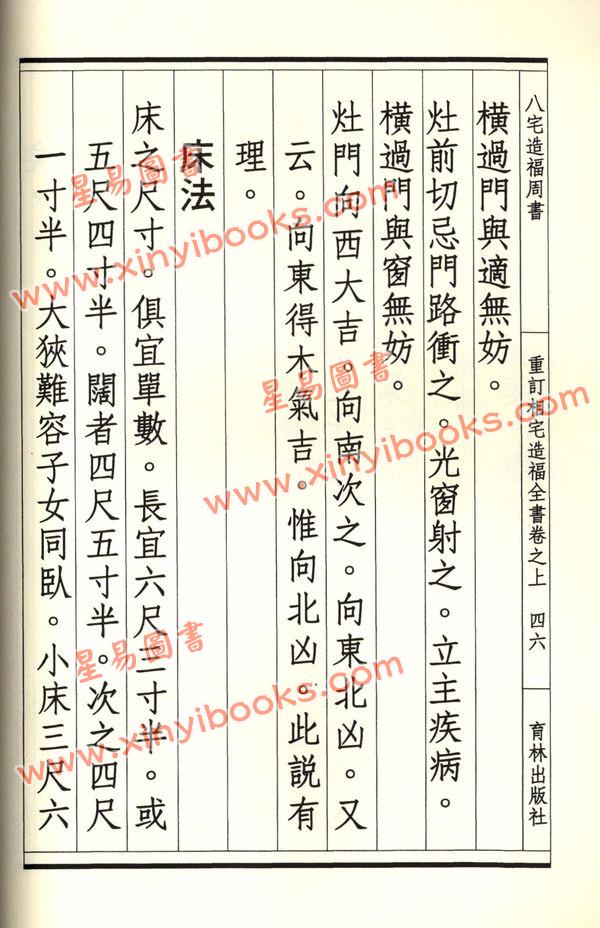 八宅造福周書
重訂相宅造福全書卷之上 四六
育林出版社
橫過門與適無妨。
灶前切忌門路衝之。光窗射之。立主疾病。
橫過門與窗無妨。
灶門向西大吉。向南次之。向東北凶。又
云。向東得木氣吉。惟向北凶。此說有
理。
床法
床之尺寸。俱宜單數。長宜六尺三寸半。或
五尺四寸半。闊者四尺五寸半。次之四尺
一寸半。大狹難容子女同臥。小床三尺六
星易圖書
www.xinyibooks.com
星易圖書
www.xinyibooks.com
星易圖書
www.xinyibooks.com